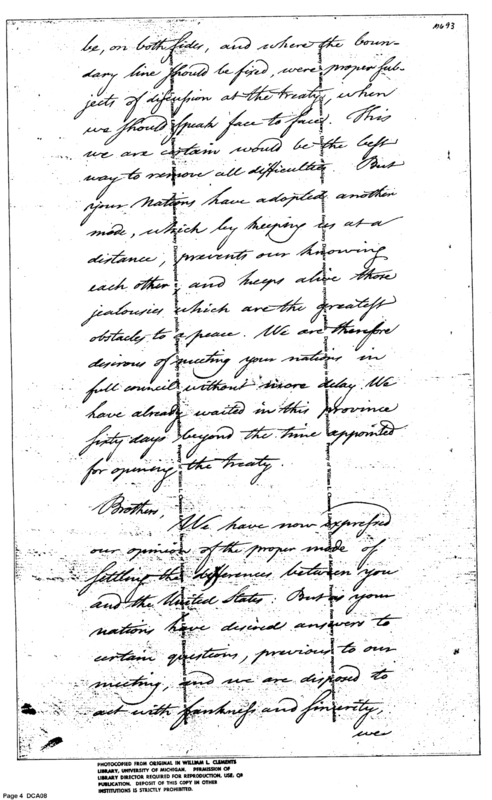 N693
be, on both sides, and where the boun-
dary line should be fixed, were proper sub-
jects of discussion at the treaty, when
we should speak face to face. This
we are certain would be the best
way to remove all difficulties. But
your Nations have adopted another
mode, which by keeping us at a
distance, prevents our knowing
each other, and keeps alive those
jealousies which are the greatest
obstacles to a peace. We are therefore
desirous of meeting your nations in
full council without more delay. We
have already waited in this province
sixty days beyond the time appointed
for opening the treaty.
Brothers,
We have now expressed
our opinion of the proper mode of
settling the differences between you
and the United States: But as your
nations have desired answers to
certain questions, previous to our
meeting, and we are disposed to
act with frankness and sincerity,
we
PHOTOCOPIED FROM ORIGINAL IN WILLIAM L. CLEMENTS
LIBRARY, UNIVERSITY OF MICHIGAN. PERMISSION OF
LIBRARY DIRECTOR REQUIRED FOR REPRODUCTION, USE, OR
PUBLICATION. DEPOSIT OF THIS COPY IN OTHER
INSTITUTIONS IS STRICTLY PROHIBITED.
Page 4 DCA08